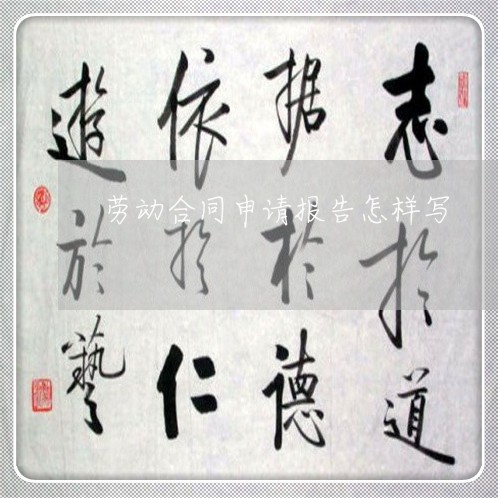 志於道
据於德
依於仁
遊於藝
劳动合同申请报告怎样写